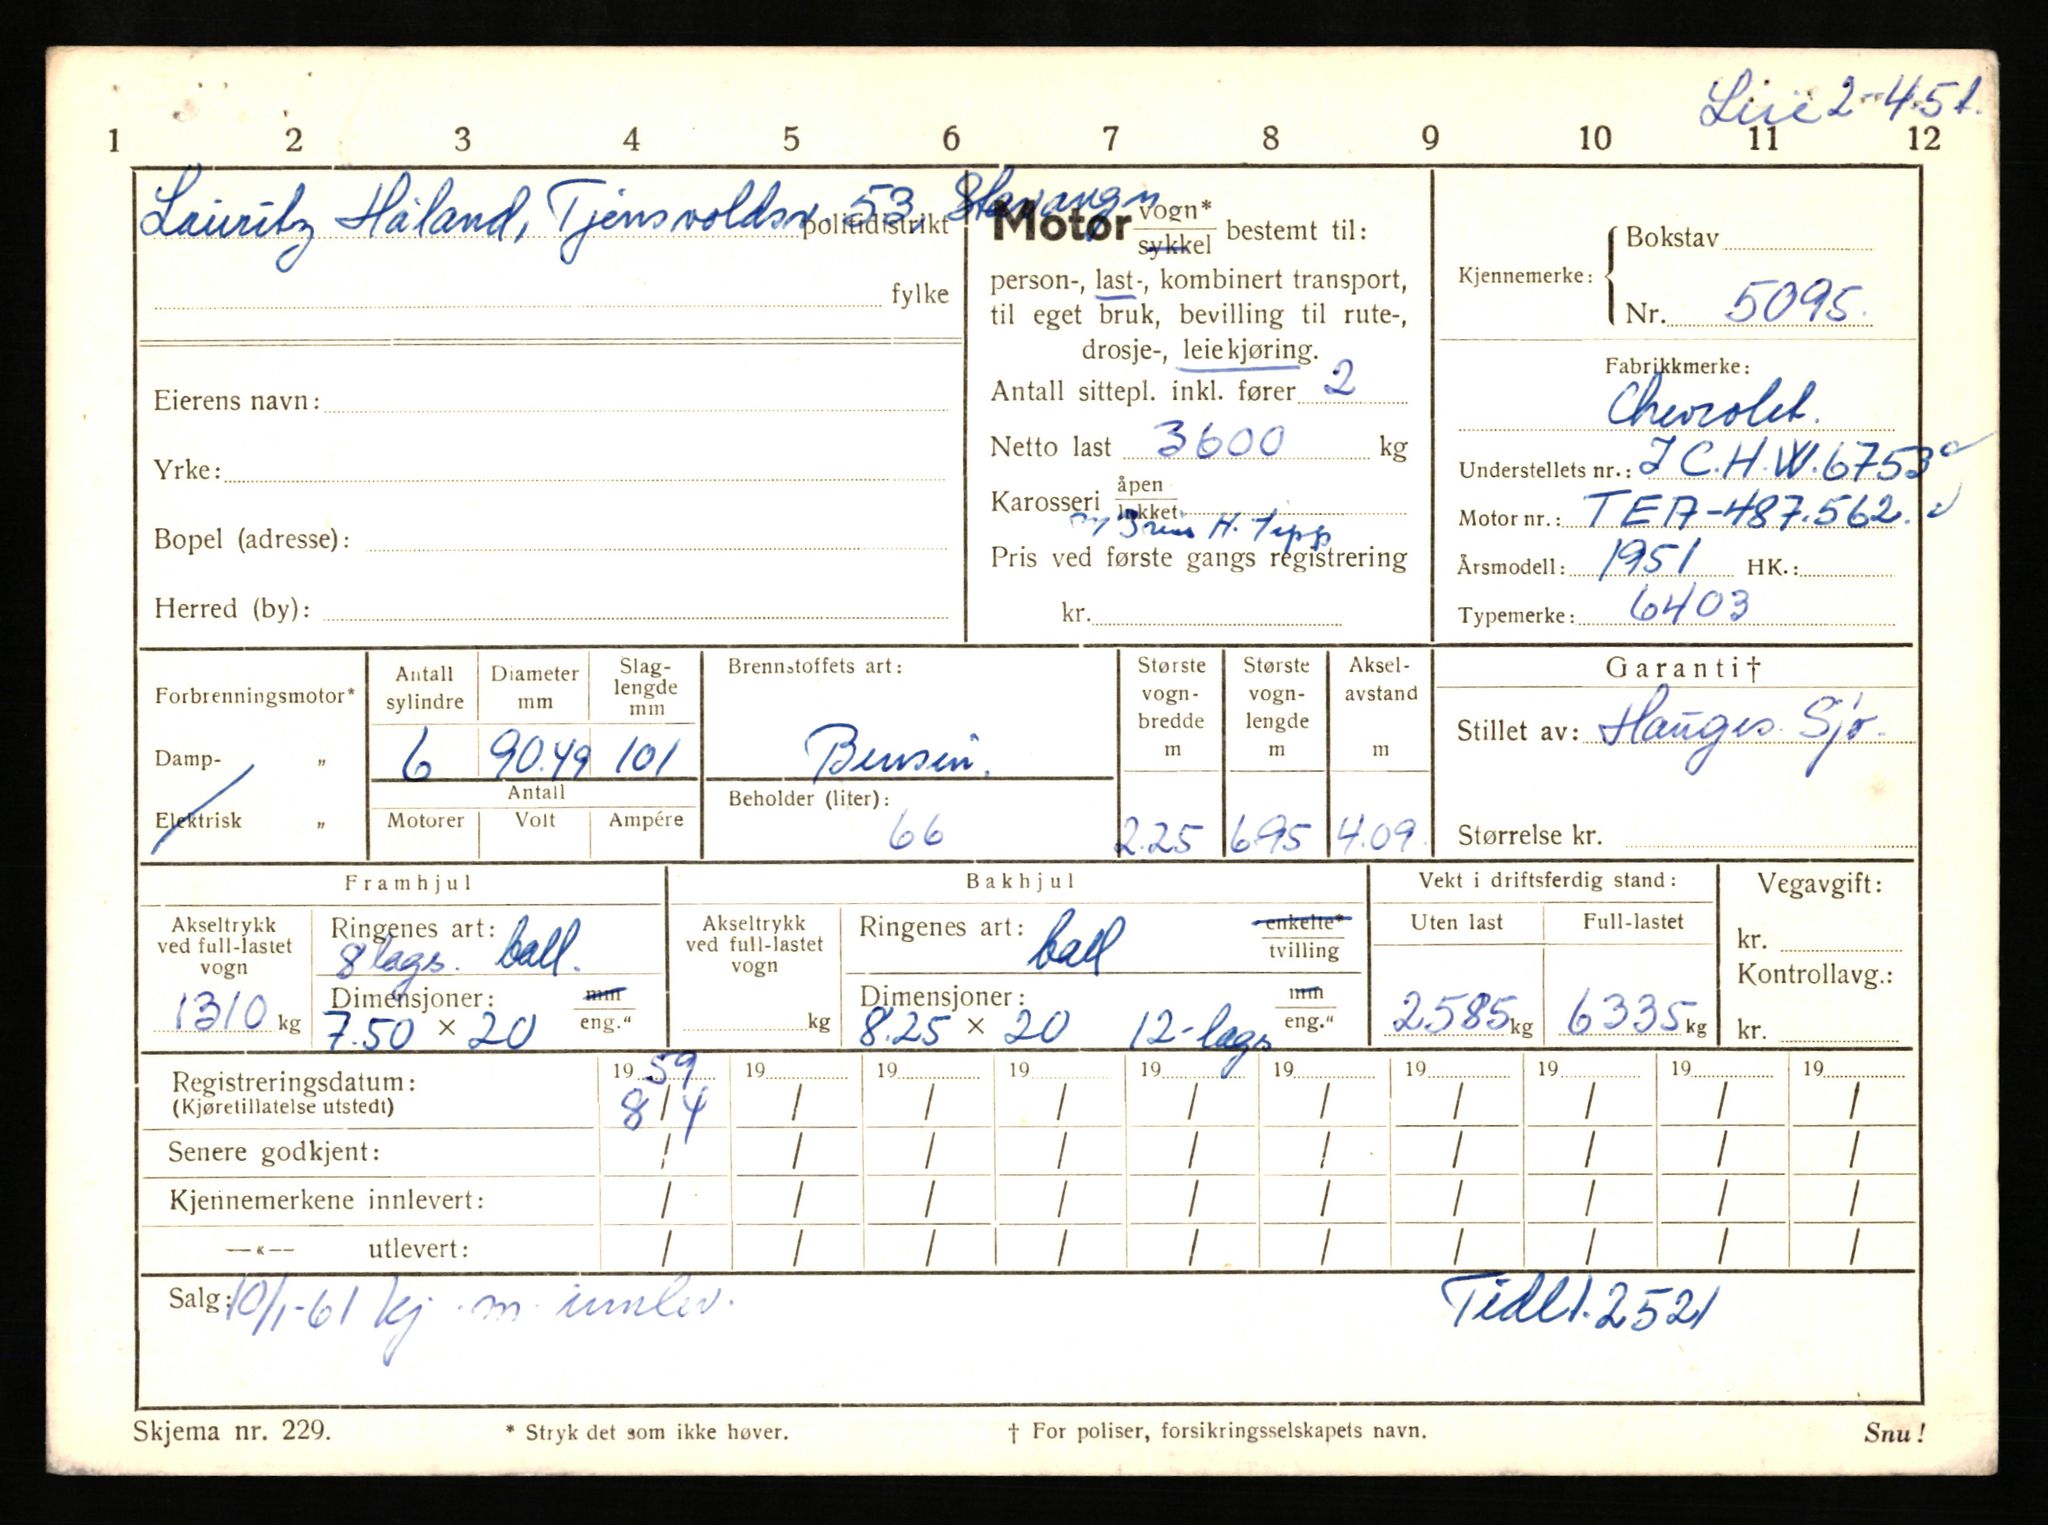 2-4.5t.
1 2 3 4 5 6 7 8 9 10 11 12
Lauritz Håland, Tjensvoldsv. 53, Stavanger
politidistrikt
fylke
Eierens navn:
Yrke:
Bopel (adresse):
Herred (by):
Motor vogn* / sykkel bestemt til:
person-, last-, kombinert transport,
til eget bruk, bevilling til rute-,
drosje-, leiekjøring.
Antall sittepl. inkl. fører 2
Netto last 3600 kg
Karosseri åpen / lukket
H. Tipp
Pris ved første gangs registrering
kr.
Kjennemerke: Bokstav
Nr. 5095.
Fabrikkmerke:
Chevrolet.
Understellets nr.: J C.H.W. 6753
Motor nr.: TEA-487.562.
Årsmodell: 1951 HK.:
Typemerke: 6403
Forbrenningsmotor*
Damp- "
Elektrisk "
Antall sylindre
Diameter mm
Slag-lengde mm
6 90.49 101
Antall
Motorer Volt Ampére
Brennstoffets art:
Bensin.
Beholder (liter):
66
Største vogn-bredde m
2.25
Største vogn-lengde m
695
Aksel-avstand m
4.09
Garanti†
Stillet av: Hauges. Sjø.
Størrelse kr.
Framhjul
Akseltrykk ved full-lastet vogn
1310 kg
Ringenes art:
8 lags. ball.
Dimensjoner: mm / eng."
7.50 × 20
Bakhjul
Akseltrykk ved full-lastet vogn
kg
Ringenes art: enkelte* / tvilling
ball
Dimensjoner: mm / eng."
8.25 × 20 12-lags
Vekt i driftsferdig stand:
Uten last Full-lastet
2585 kg 6335 kg
Vegavgift:
kr.
Kontrollavg.:
kr.
Registreringsdatum: 1959 19 19 19 19 19 19 19 19 19
(Kjøretillatelse utstedt) 8/4 / / / / / / / / /
Senere godkjent: / / / / / / / / / /
Kjennemerkene innlevert: / / / / / / / / / /
—«— utlevert: / / / / / / / / / /
Salg: 10/1-61 kj. m. innlev. Tidl. 2521
Skjema nr. 229. * Stryk det som ikke høver. † For poliser, forsikringsselskapets navn. Snu!